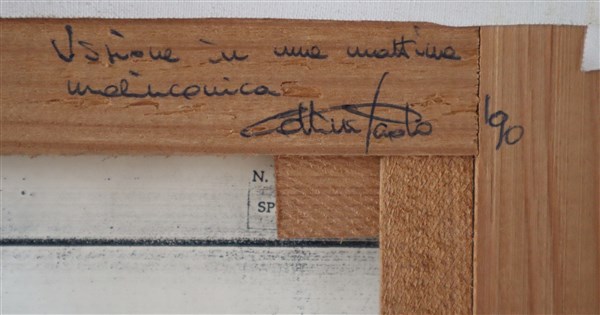 Visione in una mattina
malinconica
Paolo '90
N.
SP